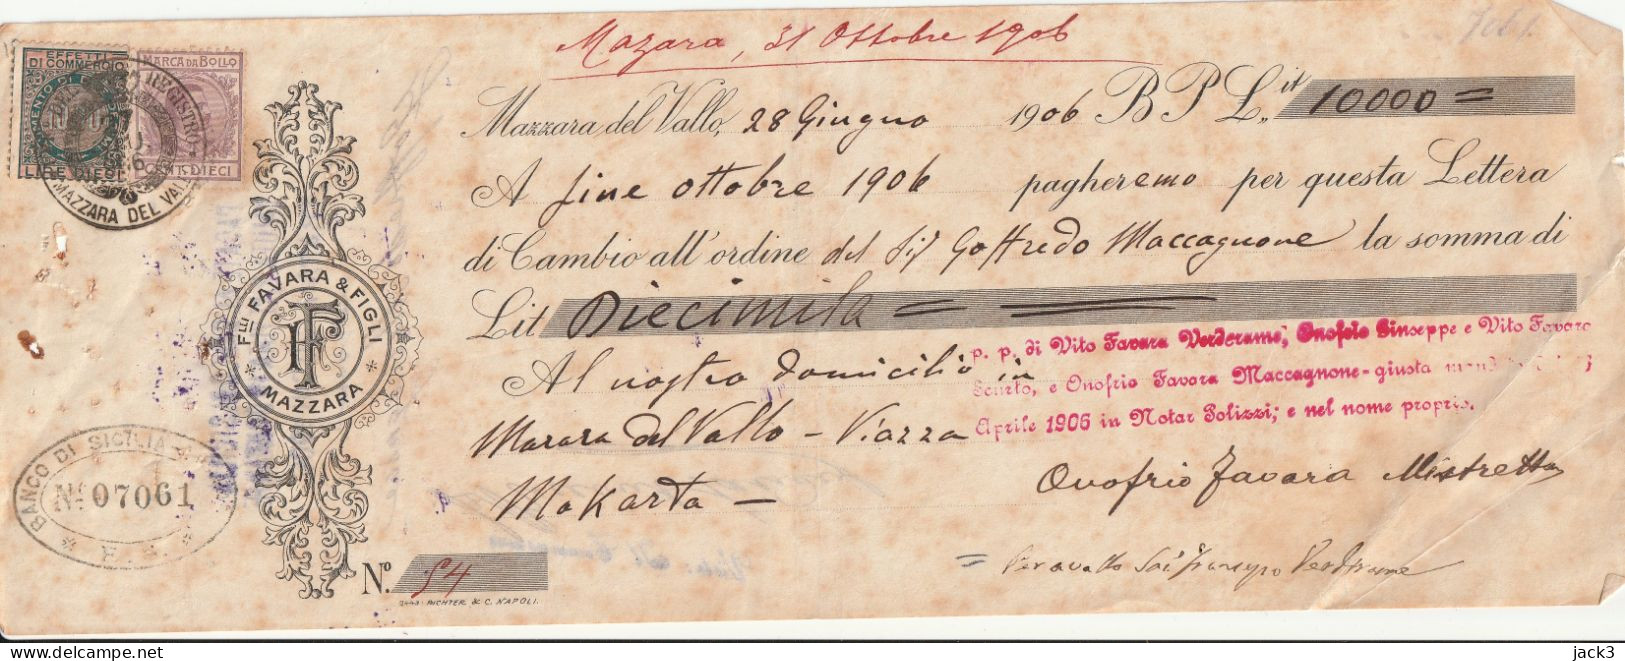 Mazara, 31 Ottobre 1906
7061
EFFETTI
DI COMMERCIO
LIRE DIECI
MARCA DA BOLLO
CENT. DIECI
REGISTRO
MAZZARA DEL VAL
Mazzara del Vallo, 28 Giugno 1906 B P Lit. 10000 =
A fine ottobre 1906 pagheremo per questa Lettera
di Cambio all'ordine del Sig Goffredo Maccagnone la somma di
Lit Diecimila =
Al nostro domicilio in
Mazara del Vallo - Piazza
Mokarta -
p. p. di Vito Favara Verderame, Onofrio Giuseppe e Vito Favara
Scurto, e Onofrio Favara Maccagnone - giusta
Aprile 1905 in Notar Polizzi; e nel nome proprio.
Onofrio Favara Mistretta
= Per avallo Verderame
Flli FAVARA & FIGLI
FF
* MAZZARA *
BANCO DI SICILIA
No. 07061
No. 54
RICHTER & C. NAPOLI.
jack3